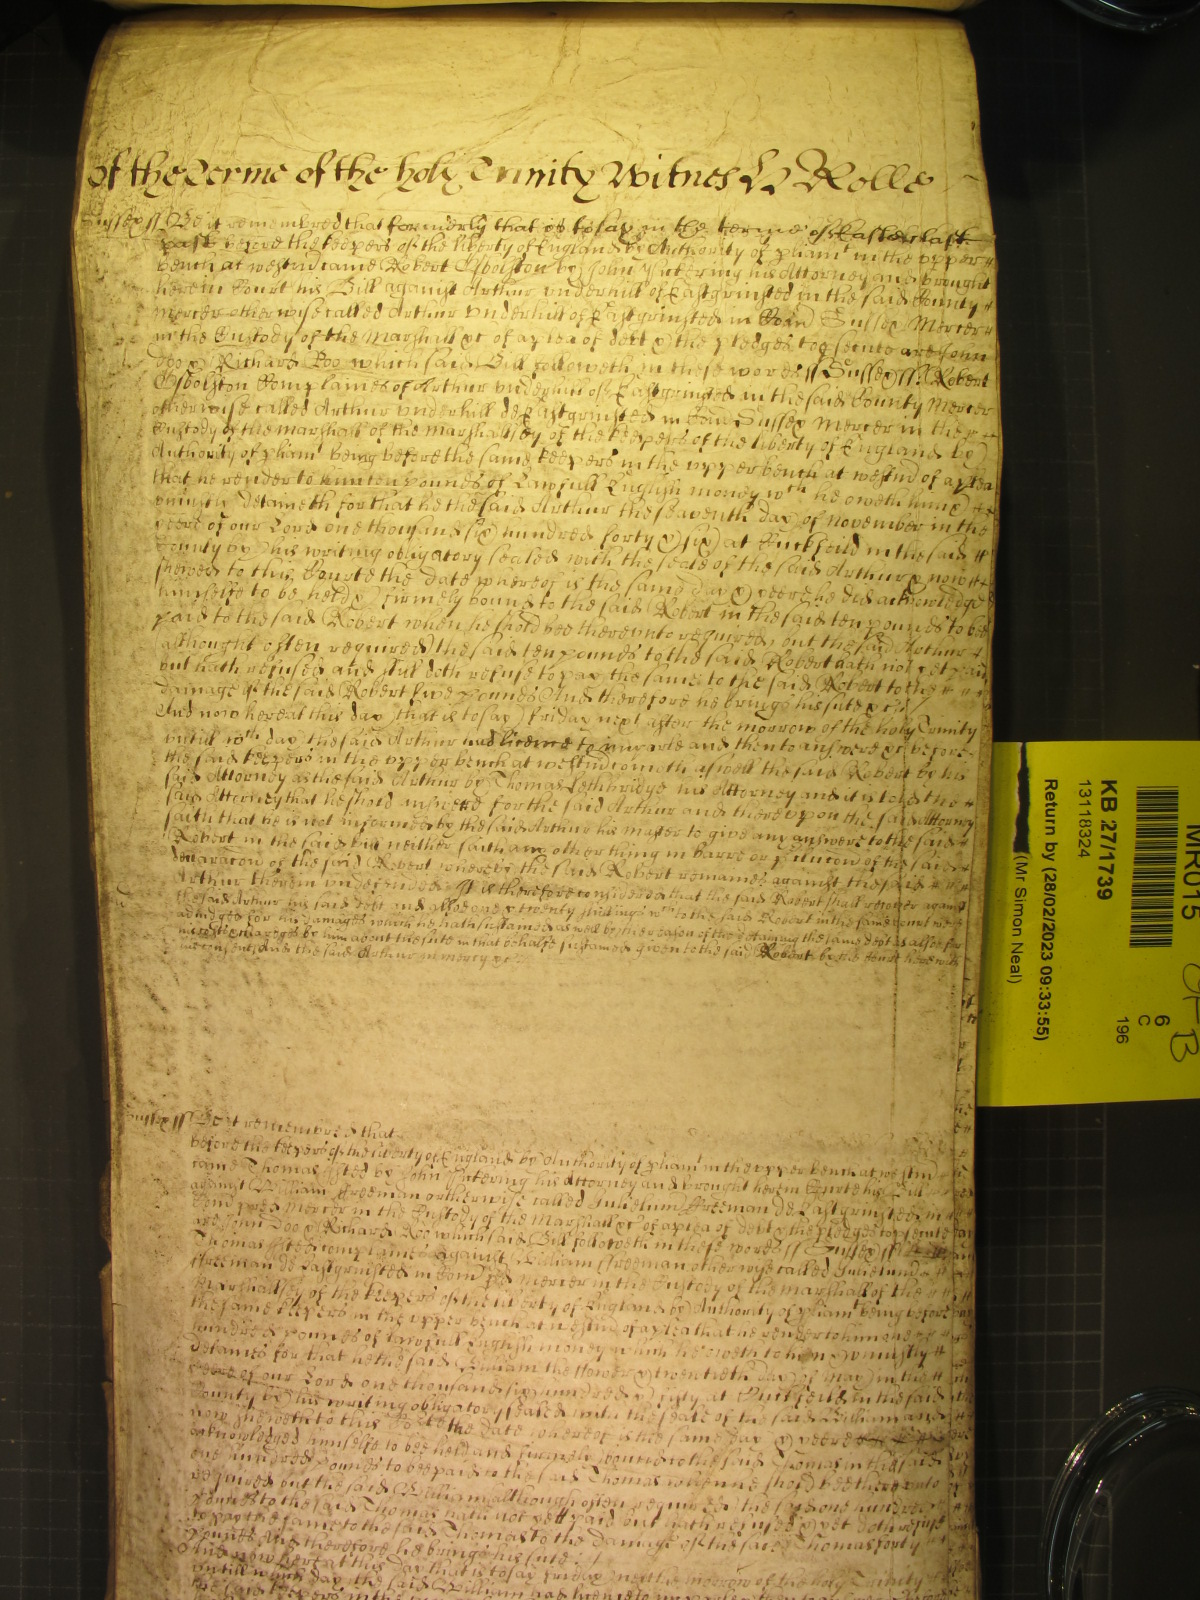 of the Terme of the holy Trinity Witnes H Rolle
Sussex ss Be it remembred that formerly that is to say in the terme of Easter last
past before the keepers of the liberty of England by Authority of pliamt in the upper
bench at westm came Robert Osbolston by John Pickering his Attorney and brought
here in Court his Bill against Arthur underhill of Eastgrinsted in the said County
Mercer otherwise called Arthur underhill of Eastgrinsted in Com Sussex Mercer
in the Custody of the Marshall &c of a plea of debt & the pledges to psecute are John
Doo & Richard Roo which said Bill followeth in these words ss Sussex ss Robert
Osbolston Complaines of Arthur underhill of Eastgrinsted in the said County Mercer
otherwise called Arthur underhill de Eastgrinsted in Com Sussex Mercer in the
Custody of the Marshall of the Marshallsey of the keepers of the liberty of England by
Authority of pliamt being before the same keepers in the upper bench at westm of a plea
that he render to him ten pounds of Lawfull English money wch he oweth him &
uniustly detaineth for that he the said Arthur the seaventh day of november in the
yeere of our Lord one thousand six hundred forty & six at Cuckfeild in the said
County by his writing obligatory sealed with the seale of the said Arthur & now
shewed to this Courte the date whereof is the same day & yeere he did acknowledge
himselfe to be held & firmely bound to the said Robert in the said ten pounds to bee
paid to the said Robert when he shold bee thereunto required but the said Arthur
althought often required the said ten pounds to the said Robert hath not yet paid
but hath refused and still doth refuse to pay the same to the said Robert to the
damage of the said Robert five pounds And therefore he brings his sute &c
And now here at this day that is to say friday next after the morrow of the holy Trinity
untill wch day the said Arthur had licence to imparle and then to answere &c before
the said keepers in the upper bench at westm cometh aswell the said Robert by his
said Attorney as the said Arthur by Thomas Lethbridge his Attorney and it is told the
said Attorney that he shold answere for the said Arthur and thereupon the said Attorney
saith that he is not informed by the said Arthur his master to give any answere to the said
Robert in the said bill neither saith any other thing in barre or of the said
declaracon of the said Robert whereby the said Robert remaines against the said
Arthur therein undefended It is therefore considered that the said Robert shall recover against
the said Arthur his said debt and alsoe one & twenty shillings wch to the said Robert in the same court were
adiudged for his damages which he hath sustained as well by the reason of the detaining the same debt as alsoe for
his costs & charges by him about the sute in that behalfe sustained given to the said Robert by the Court here with
his consent, And the said Arthur in mercy &c
Sussex ss Be it remembred that
before the keepers of the liberty of England by Authority of pliamt in the upper bench at westm
came Thomas by John Pickering his Attorney and brought here in Courte his Bill
against William Freeman otherwise called Gulielmu Freeman de Eastgrinsted in
Com pred Mercer in the Custody of the Marshall &c of a plea of debt & the pledges to psecute
are John Doo & Richard Roo which said Bill followeth in these words ss Sussex ss
Thomas complaines against William Freeman otherwise called Gulielmu
Freeman de Eastgrinsted in Com pred mercer in the Custody of the marshall of the
Marshallsey of the keepers of the liberty of England by Authority of pliamt being before
the same keepers in the upper bench at westm of a plea that he render to him one
hundred pounds of lawfull English money which he oweth to him & uniustly
detaines for that he the said William the & twentieth day of may in the
yeere of our Lord one thousand six hundred & fifty at Cuckfeild in the said
County by his writing obligatory sealed with the seale of the said William and
now sheweth to this Court the date whereof is the same day & yeere
acknowledged himselfe to bee held and firmely bound to the said Thomas in the said
one hundred pounds to bee paid to the said Thomas when he shold bee thereunto
required but the said William although often required the said one hundred
pounds to the said Thomas hath not yet paid but hath refused & yet doth refuse
to pay the same to the said Thomas to the damage of the said Thomas forty
pounds And therefore he brings his sute
And now here at this day that is to say friday next the morrow of the holy Trinity
untill which day the said William had licence to
the said keepers in the
MR015
6
C
196
KB 27/1739
13118324
Return by (28/02/2023 09:33:55)
(Mr Simon Neal)